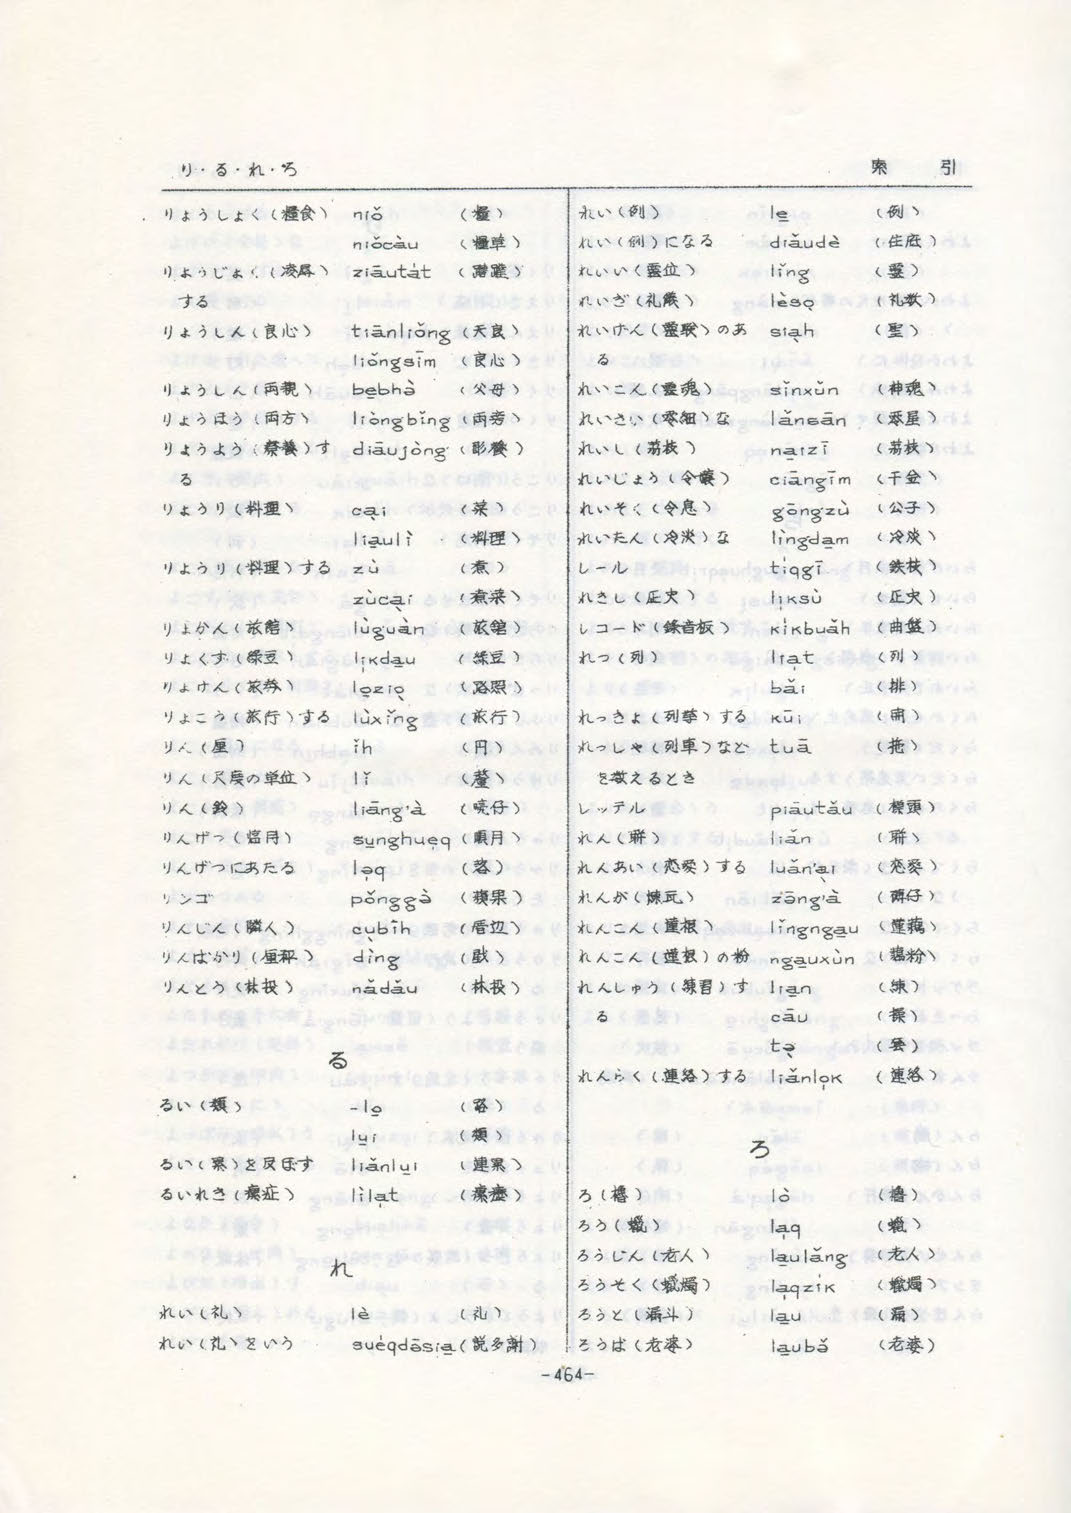 り・る・れ・ろ 索 引
りょうしょく(糧食) niǒ (糧)
niǒcàu (糧草)
りょうじょく(凌辱) ziāuta̍t (蹧蹋)
する
りょうしん(良心) tiānliǒng (天良)
liǒngsīm (良心)
りょうしん(両親) be̲bhà (父母)
りょうほう(両方) liòngbǐng (両旁)
りょうよう(療養)す diāujòng
る
りょうり(料理) ca̲i (菜)
lia̲ulì (料理)
りょうり(料理)する zù (煮)
zùca̲i (煮菜)
りょかん(旅館) lùguàn (旅舘)
りょくず(緑豆) li̍kda̲u (緑豆)
りょけん(旅券) lo̲zio̲ (路照)
りょこう(旅行)する lùxǐng (旅行)
りん(厘) ǐh (円)
りん(尺度の単位) lǐ (釐)
りん(鈴) liāng'à
りんげつ(臨月) su̲nghue̍q (順月)
りんげつにあたる lə̍q
リンゴ pǒnggə̀ (蘋果)
りんじん(隣人) cùbǐh (厝辺)
りんばかり(厘秤) dìng
りんとう(林投) nǎdǎu (林投)
る
るい(類) -lo̲ (路)
lu̲i (類)
るい(累)を及ぼす liǎnlu̲i (連累)
るいれき(瘰症) lìla̍t
れ
れい(礼) lè (礼)
れい(礼)をいう suéqdōsia̲ (説多謝)
れい(例) le̲ (例)
れい(例)になる diǎudè
れいい(霊位) lǐng (靈)
れいぎ(礼儀) lèso̲ (礼数)
れいけん(霊験)のあ sia̲h (聖)
る
れいこん(霊魂) sǐnxǔn (神魂)
れいさい(零細)な lǎnsān (零星)
れいし(茘枝) na̲izī (茘枝)
れいじょう(令嬢) ciāngīm (千金)
れいそく(令息) gōngzù (公子)
れいたん(冷淡)な lìngda̲m (冷淡)
レール tíqgī (鉄枝)
れきし(正史) li̍ksù (正史)
レコード(録音板) kíkbuǎh (曲盤)
れつ(列) lia̍t (列)
bǎi (排)
れっきょ(列挙)する kūi (開)
れっしゃ(列車)など tuā (拖)
を数えるとき
レッテル piāutǎu (標頭)
れん(聯) liǎn (聯)
れんあい(恋愛)する luǎn'a̲i (恋愛)
れんが(煉瓦) zōng'à (磚仔)
れんこん(蓮根) lǐngnga̲u (蓮藕)
れんこん(蓮根)の粉 nga̲uxùn (藕粉)
れんしゅう(練習)す lia̲n (練)
る cāu (操)
tə̍
れんらく(連絡)する liǎnlo̍k (連絡)
ろ
ろ(櫓) lò (櫓)
ろう(蠟) la̍q (蠟)
ろうじん(老人) la̲ulǎng (老人)
ろうそく(蠟燭) la̍qzík (蠟燭)
ろうと(漏斗) la̲u (漏)
ろうば(老婆) la̲ubǒ (老婆)
-464-